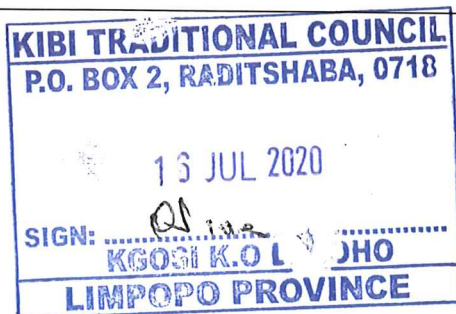 KIBI TRADITIONAL COUNCIL
P.O. BOX 2, RADITSHABA, 0718
16 JUL 2020
SIGN:
KGOSI K.O
LIMPOPO PROVINCE